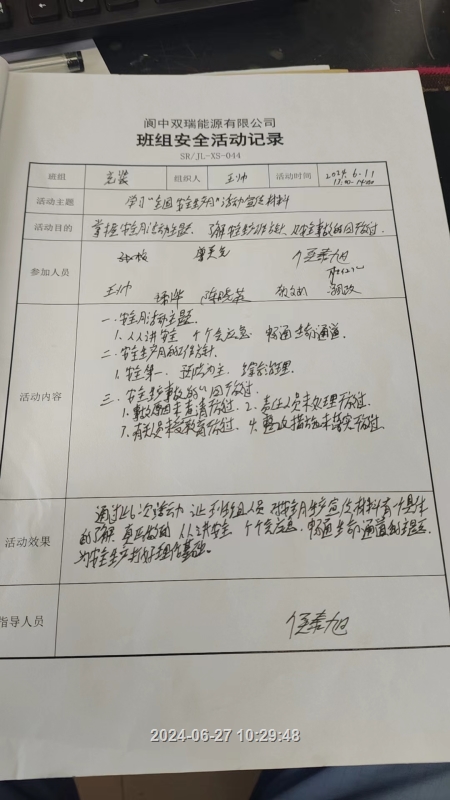 阆中双瑞能源有限公司
班组安全活动记录
SR/JL-XS-044
班组 充装 组织人 王帅 活动时间 2024.6.11
活动主题 学习"全国安全生产月"活动宣传材料
活动目的 掌握安全月活动主题、了解安全生产工作方针、及安全事故的四不放过.
参加人员
王帅 陈晓英
活动内容
一.安全月活动主题.
1.人人讲安全 个个会应急 畅通生命通道
二.安全生产月的工作方针.
1.安全第一、预防为主、综合治理
三.安全生产事故的"四不放过.
1.事故原因未查清不放过. 2.责任人员未处理不放过.
3.有关人员未受教育不放过. 4.整改措施未落实不放过.
活动效果
通过此次活动 让到班组人员 对安全月生产宣传材料有个具体
的了解 真正做到 人人讲安全 个个会应急、畅通生命通道的主题.
为安全生产打好理论基础.
指导人员
2024-06-27 10:29:48